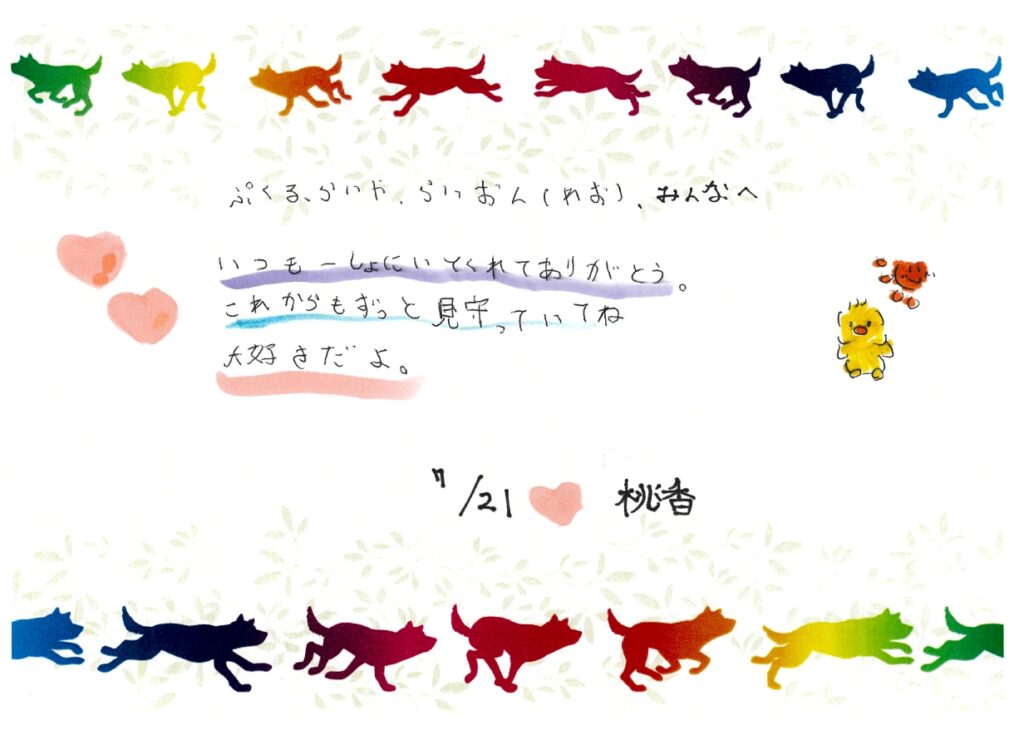 ぷくる、らいや、らいおん(れお)、みんなへ
いつも一しょにいてくれてありがとう。
これからもずっと見守っていてね
大好きだよ。
7/21 桃香